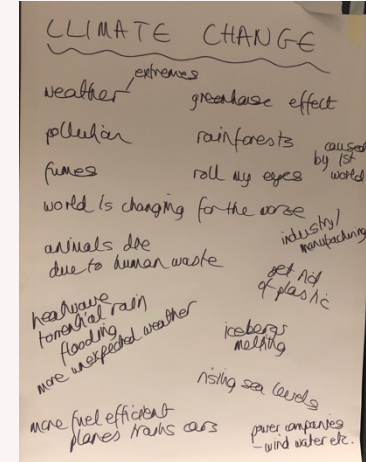 CLIMATE CHANGE
extremes
weather
greenhouse effect
pollution
rainforests
caused
by 1st
world
fumes
roll my eyes
world is changing for the worse
industry/
manufacturing
animals die
due to human waste
get rid
of plastic
heatwave
torrential rain
flooding
more unexpected weather
icebergs
melting
rising sea levels
more fuel efficient
planes trains cars
power companies
- wind water etc.